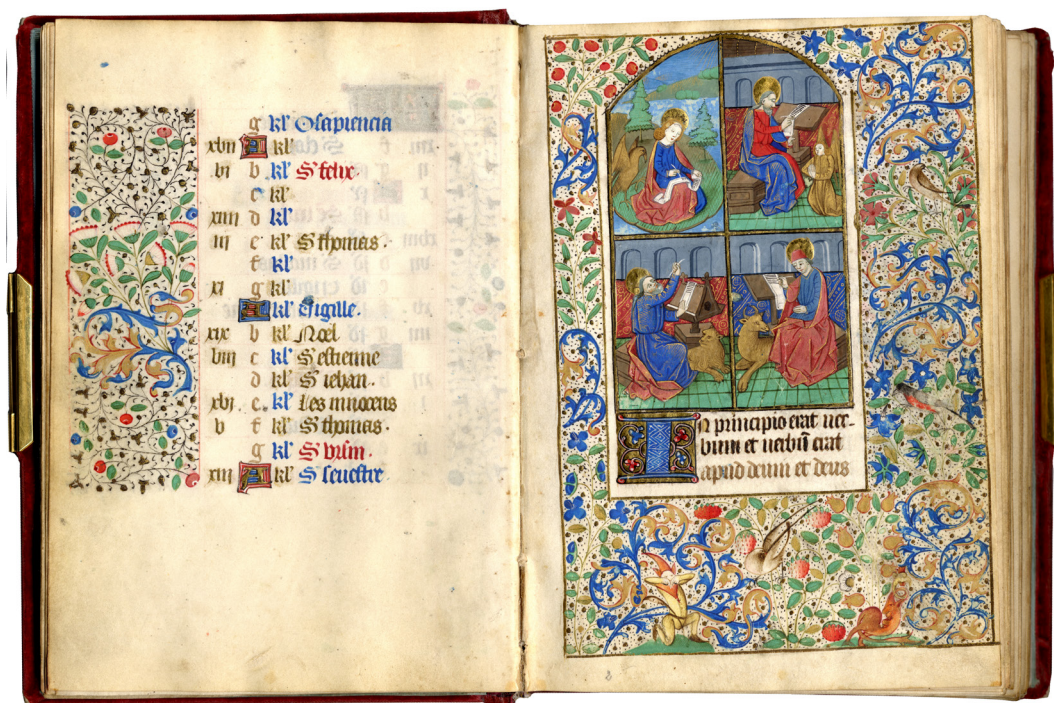 g kl' O sapiencia
xviii A kl'
vi b kl' S' felix.
c kl'
xiiii d kl'
iii e kl' S thomas.
f kl'
xi g kl'
A kl' vigille.
xix b kl' Noel
viii c kl' S' estienne
d kl' S iehan.
xvi e kl' Les innocens
v f kl' S thomas.
g kl' S' ursin.
xiii A kl' S' seuestre
In principio erat uer-
bum et uerbū erat
apud deum et deus